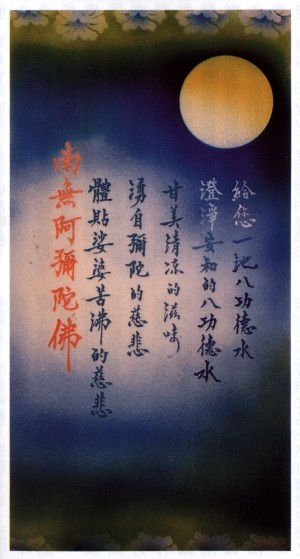 給您一池八功德水
澄淨安和的八功德水
甘美清凉的滋味
湧自彌陀的慈悲
體貼娑婆苦沸的慈悲
南無阿彌陀佛